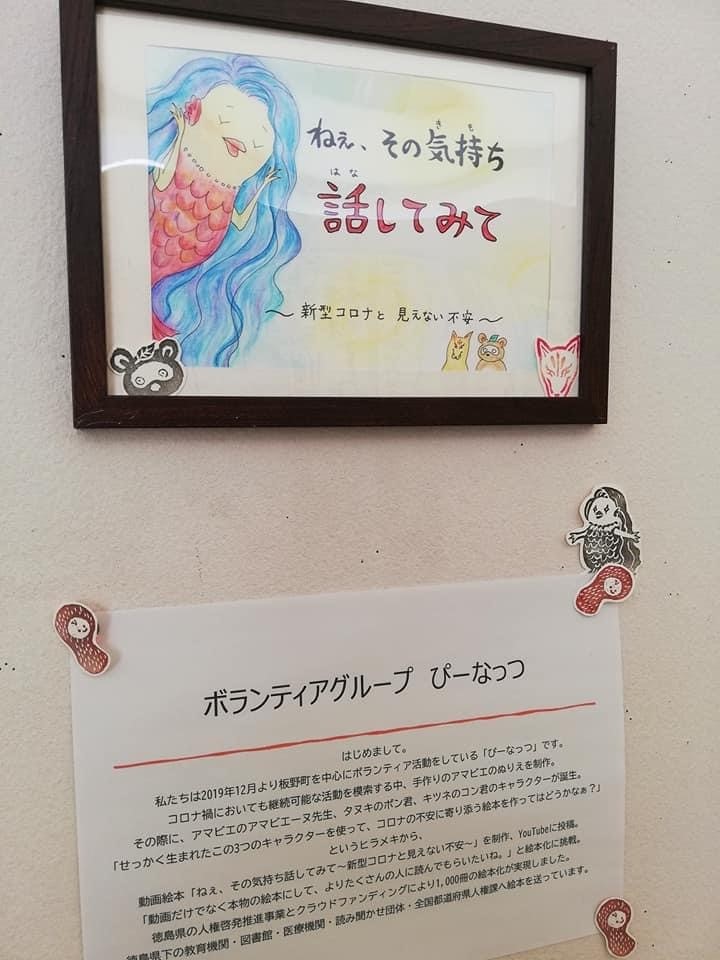 ねぇ、その気持ち
きも
話してみて
はな
～新型コロナと 見えない不安～
ボランティアグループ ぴーなっつ
はじめまして。
私たちは2019年12月より板野町を中心にボランティア活動をしている「ぴーなっつ」です。
コロナ禍においても継続可能な活動を模索する中、手作りのアマビエのぬりえを制作。
その際に、アマビエのアマビエーヌ先生、タヌキのポン君、キツネのコン君のキャラクターが誕生。
「せっかく生まれたこの3つのキャラクターを使って、コロナの不安に寄り添う絵本を作ってはどうかなぁ？」
というヒラメキから、
動画絵本「ねぇ、その気持ち話してみて～新型コロナと見えない不安～」を制作、YouTubeに投稿。
「動画だけでなく本物の絵本にして、よりたくさんの人に読んでもらいたいね。」と絵本化に挑戦。
徳島県の人権啓発推進事業とクラウドファンディングにより1,000冊の絵本化が実現しました。
徳島県下の教育機関・図書館・医療機関・読み聞かせ団体・全国都道府県人権課へ絵本を送っています。